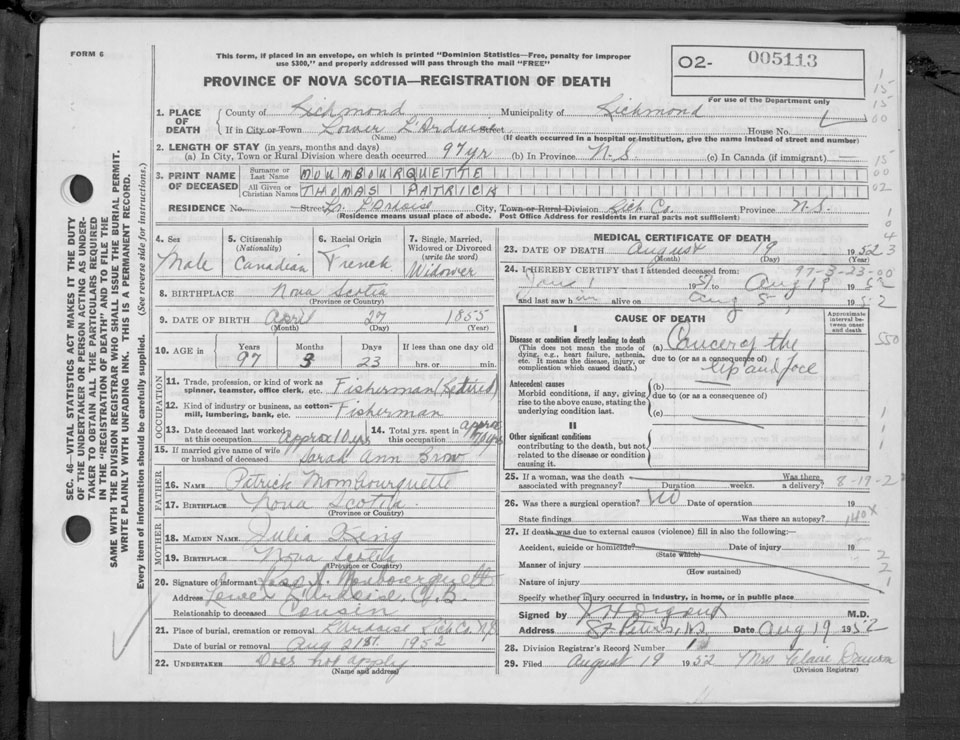 FORM 6
This form, if placed in an envelope, on which is printed "Dominion Statistics—Free, penalty for improper
use $300," and properly addressed will pass through the mail "FREE"
PROVINCE OF NOVA SCOTIA—REGISTRATION OF DEATH
O2- 005113
For use of the Department only
1. PLACE OF DEATH
County of Richmond Municipality of Richmond
If in City or Town Lower L'Ardoise Street House No.
(Name) (If death occurred in a hospital or institution, give the name instead of street and number)
2. LENGTH OF STAY (in years, months and days)
(a) In City, Town or Rural Division where death occurred 97 yr (b) In Province N.S. (c) In Canada (if immigrant) —
3. PRINT NAME OF DECEASED
Surname or Last Name MOUMBOURQUETTE
All Given or Christian Names THOMAS PATRICK
RESIDENCE No. Street Lr. L'Ardoise City, Town or Rural Division Rich Co. Province N.S.
(Residence means usual place of abode. Post Office Address for residents in rural parts not sufficient)
4. Sex Male
5. Citizenship (Nationality) Canadian
6. Racial Origin French
7. Single, Married, Widowed or Divorced (write the word) Widower
8. BIRTHPLACE Nova Scotia
(Province or Country)
9. DATE OF BIRTH April 27 1855
(Month) (Day) (Year)
10. AGE in Years 97 Months 3 Days 23 If less than one day old hrs. or min.
OCCUPATION
11. Trade, profession, or kind of work as spinner, teamster, office clerk, etc. Fisherman (Retired)
12. Kind of industry or business, as cotton-mill, lumbering, bank, etc. Fisherman
13. Date deceased last worked at this occupation Approx 10 yrs
14. Total yrs. spent in this occupation approx 70 yrs
15. If married give name of wife or husband of deceased Sarah Ann
FATHER
16. NAME Patrick Mombourquette
17. BIRTHPLACE Nova Scotia
(Province or Country)
MOTHER
18. MAIDEN NAME Julia King
19. BIRTHPLACE Nova Scotia
(Province or Country)
20. Signature of informant
Address Lower L'Ardoise, C.B.
Relationship to deceased Cousin
21. Place of burial, cremation or removal L'Ardoise Rich Co. N.S.
Date of burial or removal Aug 21st 1952
22. UNDERTAKER Does not apply
(Name and address)
MEDICAL CERTIFICATE OF DEATH
23. DATE OF DEATH August 19 1952
(Month) (Day)
24. I HEREBY CERTIFY that I attended deceased from:
97-3-23-00
1951 to Aug 19 1952
and last saw him alive on Aug 8, 1952
CAUSE OF DEATH
Approximate interval between onset and death
I
Disease or condition directly leading to death
(This does not mean the mode of dying, e.g., heart failure, asthenia, etc. It means the disease, injury, or complication which caused death.)
(a) Cancer of the
due to (or as a consequence of)
lip and face
Antecedent causes
Morbid conditions, if any, giving rise to the above cause, stating the underlying condition last.
(b)
due to (or as a consequence of)
(c)
II
Other significant conditions
contributing to the death, but not related to the disease or condition causing it.
25. If a woman, was the death associated with pregnancy? Duration weeks. Was there a delivery? 8-19-2
26. Was there a surgical operation? No Date of operation 19
State findings Was there an autopsy?
140X
27. If death was due to external causes (violence) fill in also the following:
Accident, suicide or homicide? Date of injury 19
(State which)
Manner of injury
(How sustained)
Nature of injury
Specify whether injury occurred in industry, in home, or in public place
Signed by M.D.
Address St. Peters, N.S. Date Aug 19 1952
28. Division Registrar's Record Number
29. Filed August 19 1952 Mrs
(Division Registrar)
SEC. 46—VITAL STATISTICS ACT MAKES IT THE DUTY
OF THE UNDERTAKER OR PERSON ACTING AS UNDER-
TAKER TO OBTAIN ALL THE PARTICULARS REQUIRED
IN THE "REGISTRATION OF DEATH" AND TO FILE THE
SAME WITH THE DIVISION REGISTRAR WHO SHALL ISSUE THE BURIAL PERMIT.
WRITE PLAINLY WITH UNFADING INK. THIS IS A PERMANENT RECORD.
Every item of information should be carefully supplied. (See reverse side for instructions.)